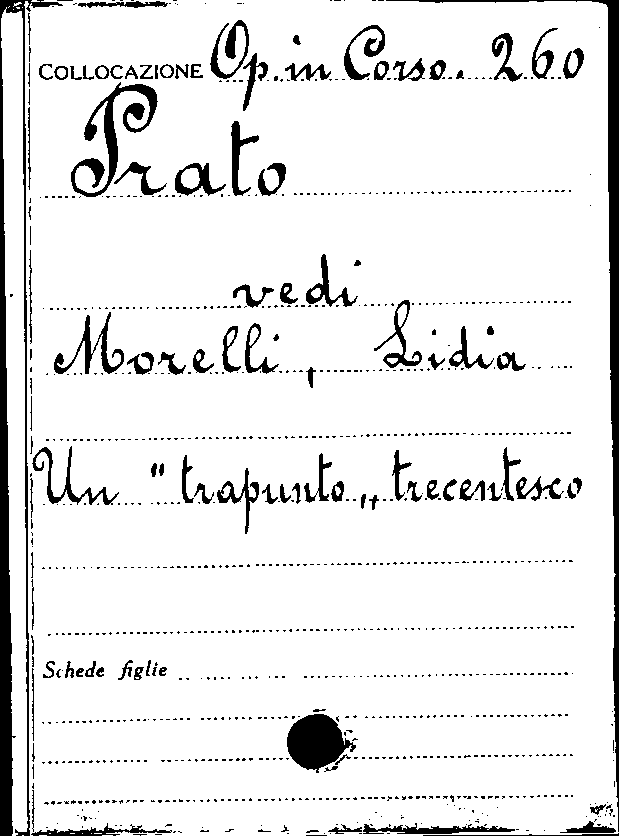 COLLOCAZIONE Op. in Corso. 260
Prato
vedi
Morelli, Lidia
Un "trapunto„ trecentesco
Schede figlie